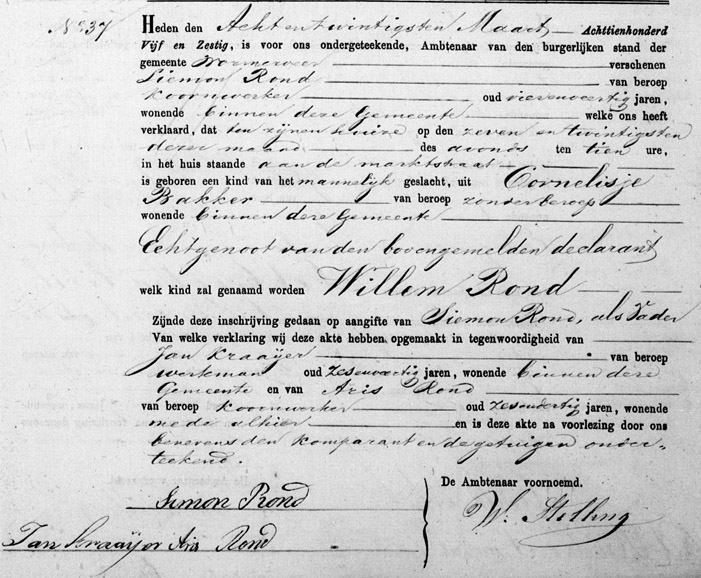 No. 37
Heden den Acht en twintigsten Maart Achttienhonderd
Vijf en Zestig, is voor ons ondergeteekende, Ambtenaar van den burgerlijken stand der
gemeente Wormerveer verschenen
Siemon Rond van beroep
Koornwerker oud vierenveertig jaren,
wonende binnen deze Gemeente welke ons heeft
verklaard, dat ten zijnen huize op den zeven en twintigsten
dezer maand des avonds ten tien ure,
in het huis staande aan de marktstraat
is geboren een kind van het mannelijk geslacht, uit Cornelisje
Bakker van beroep zonder beroep
wonende binnen deze Gemeente
Echtgenoot van den bovengemelden declarant
welk kind zal genaamd worden Willem Rond
Zijnde deze inschrijving gedaan op aangifte van Siemon Rond, als Vader
Van welke verklaring wij deze akte hebben opgemaakt in tegenwoordigheid van
Jan Kraaijer van beroep
werkman oud zesenveertig jaren, wonende binnen deze
Gemeente en van Aris Rond
van beroep Koornwerker oud zesendertig jaren, wonende
mede alhier en is deze akte na voorlezing door ons
benevens den komparant en de getuigen onder-
teekend.
De Ambtenaar voornoemd.
Simon Rond
W. Stelling
Jan Kraaijer Aris Rond